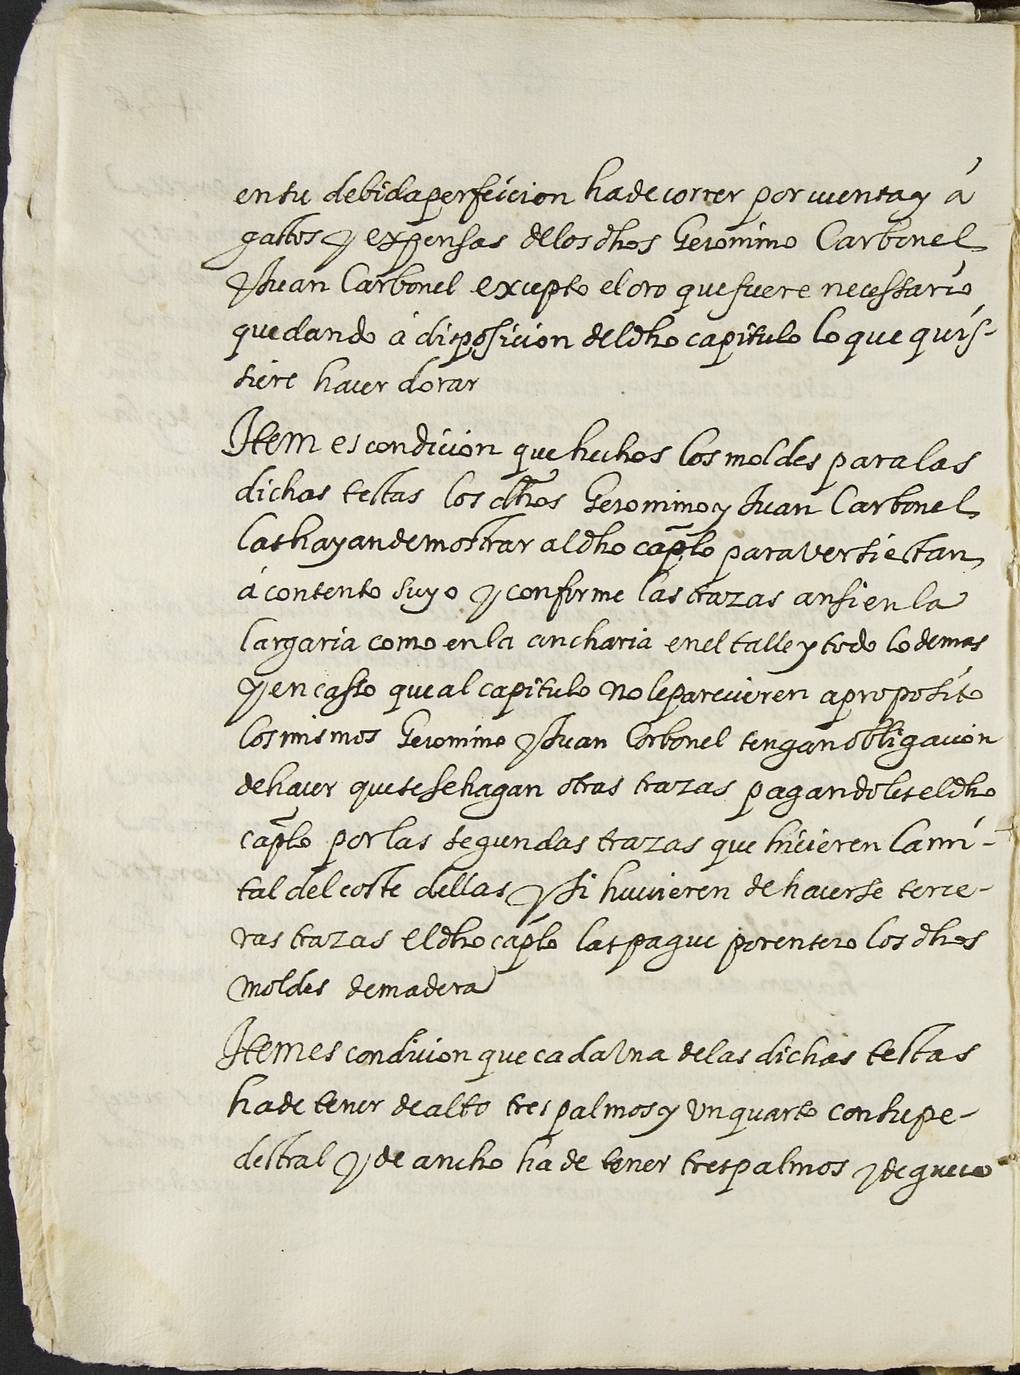 en su debida perfeicion ha de correr por cuenta y á
gastos y expensas de los dhos Geronimo Carbonel
y Juan Carbonel excepto el oro que fuere necessario
quedando á disposicion del dho capitulo lo que quis-
siere hacer dorar
Item es condicion que hechos los moldes para las
dichas testas los dhos Geronimo y Juan Carbonel
las hayan de mostrar al dho caplo para ver si estan
á contento suyo y conforme las trazas ansi en la
largaria como en la ancharia en el talle y todo lo demas
y en casso que al capitulo no le parecieren a proposito
los mismos Geronimo y Juan Carbonel tengan obligacion
de hacer que se hagan otras trazas pagandoles el dho
caplo por las segundas trazas que hicieren la mi-
tal del coste dellas y si huvieren de hacerse terce-
ras trazas el dho caplo las pague por entero los dhos
moldes de madera
Item es condicion que cada vna de las dichas testas
ha de tener de alto tres palmos y vn quarto con su pe-
destral y de ancho ha de tener tres palmos y de gueco